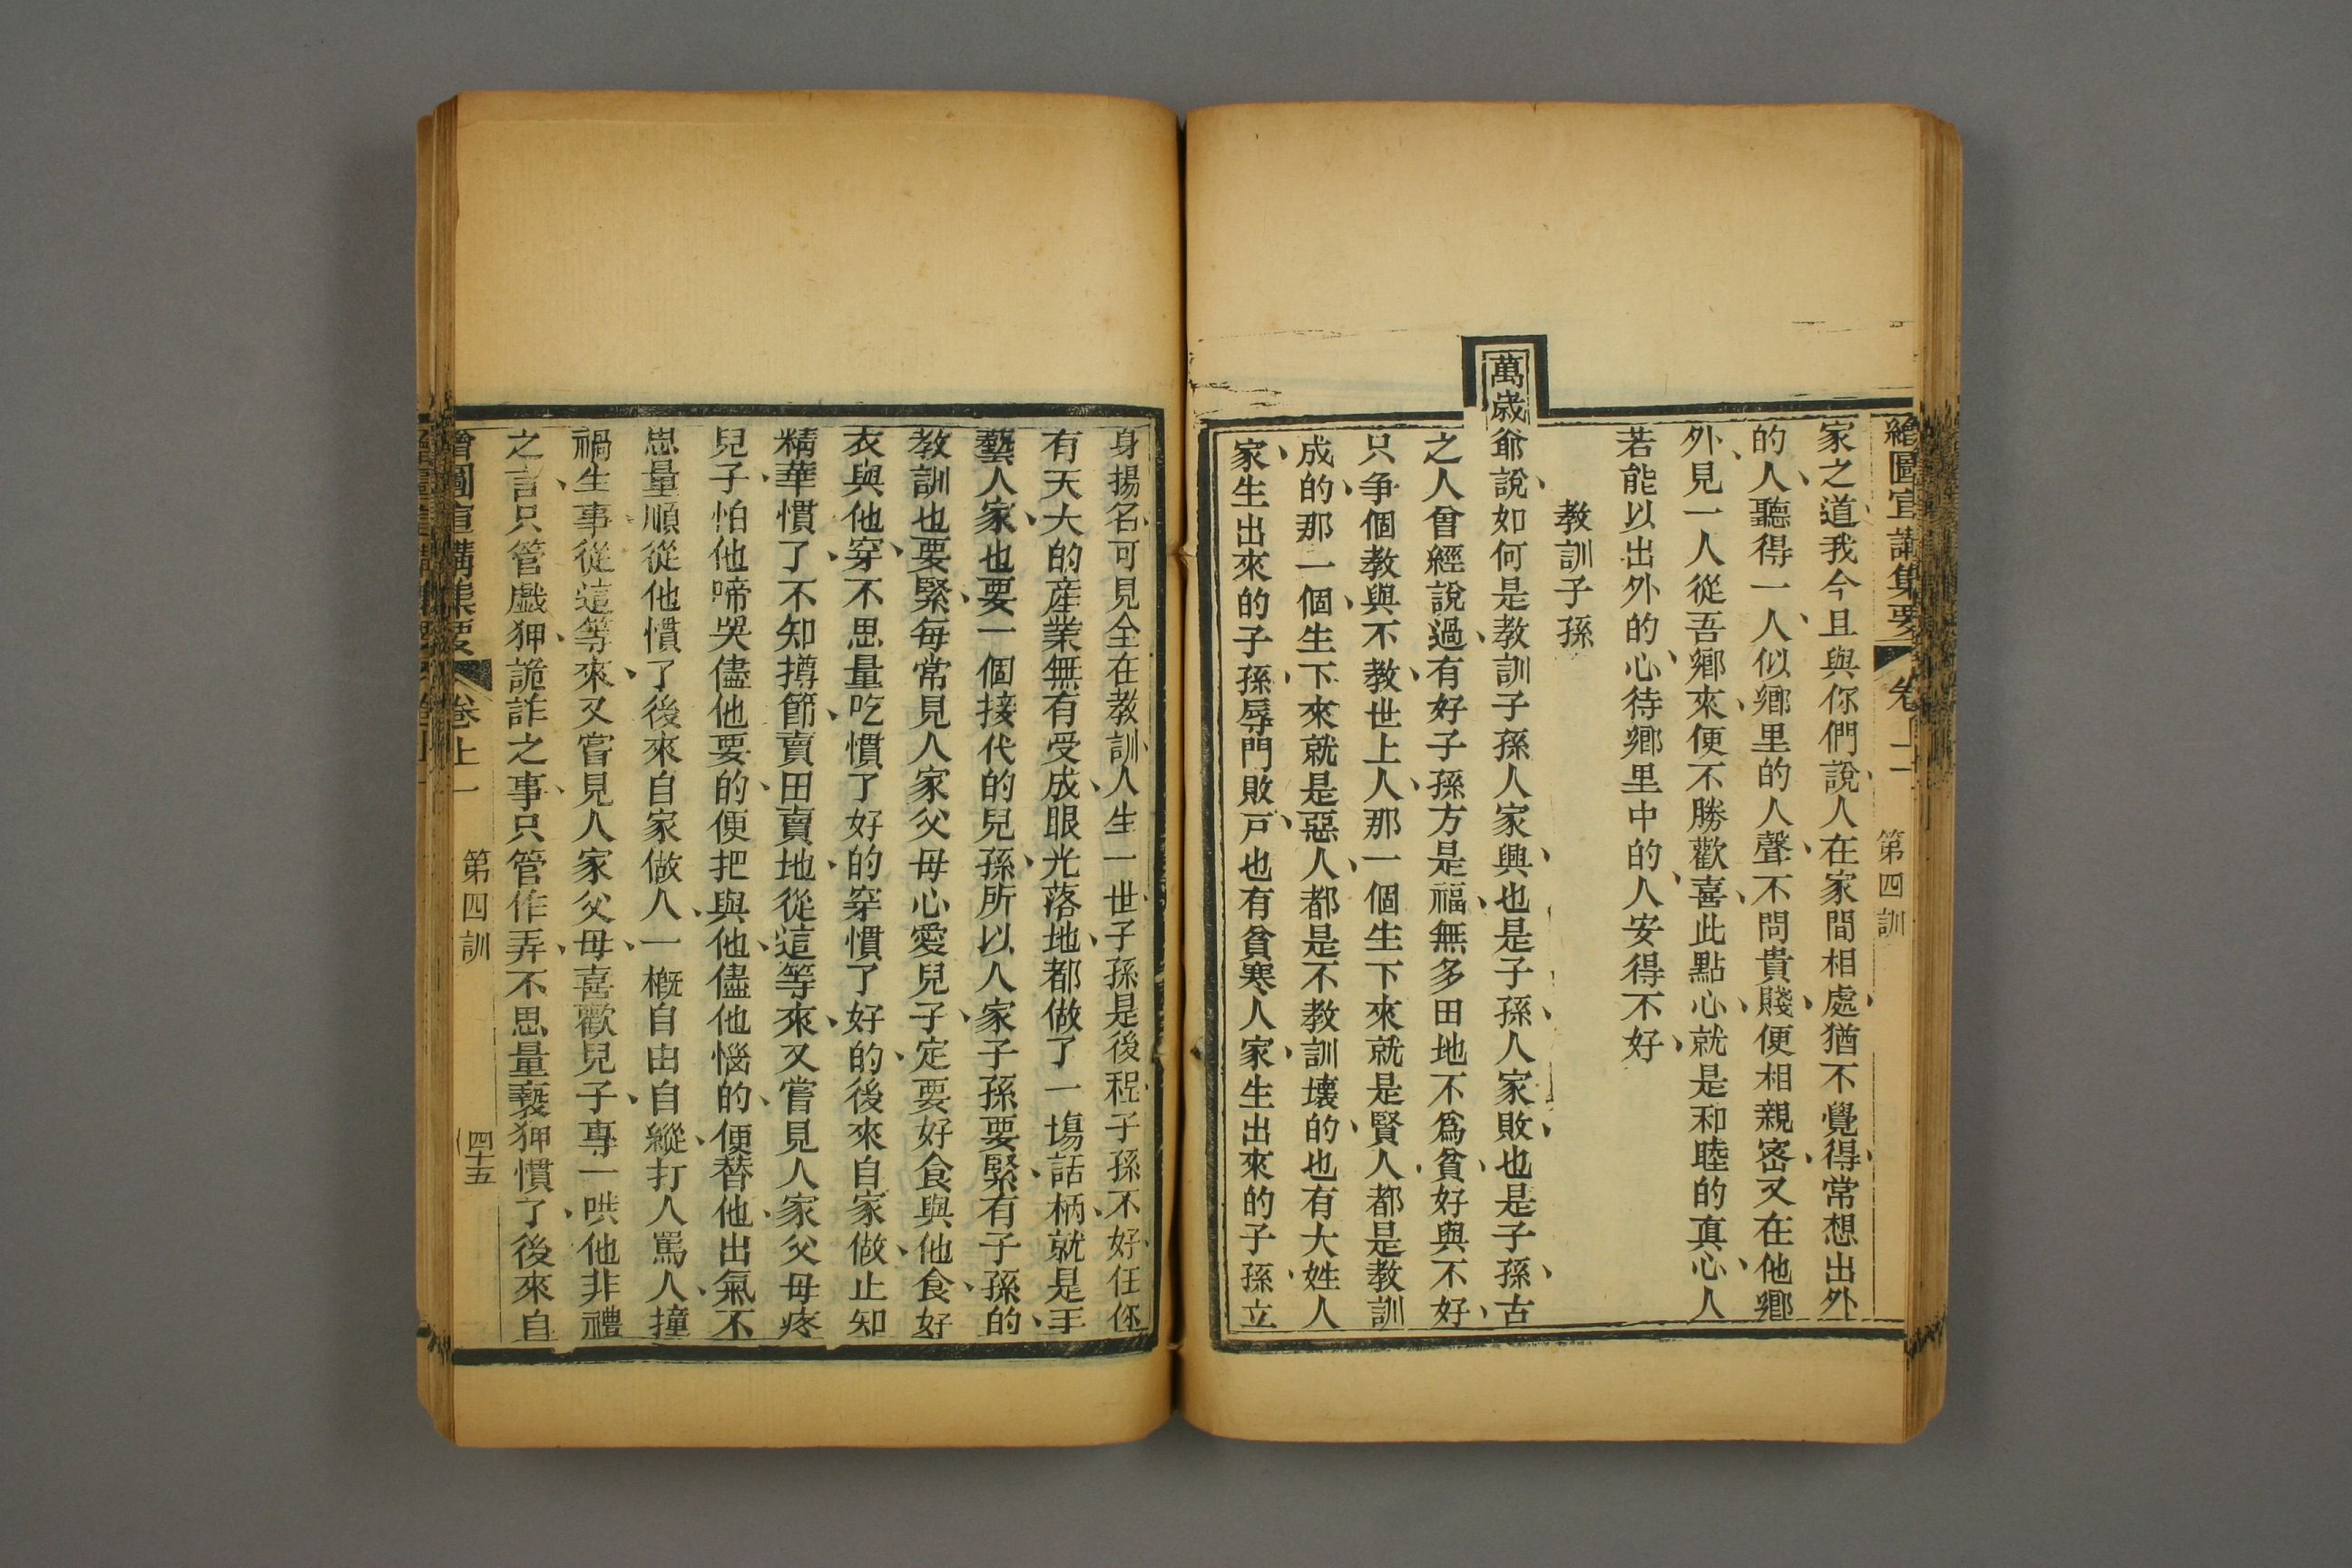 繪圖宣講集要 卷 第四訓
家之道我今且與你們說人在家間相處猶不覺得常想出外
的人聽得一人似鄉里的人聲不問貴賤便相親密又在他鄉
外見一人從吾鄉來便不勝歡喜此點心就是和睦的真心人
若能以出外的心待鄉里中的人安得不好
教訓子孫
萬歲爺說如何是教訓子孫人家興也是子孫人家敗也是子孫古
之人曾經說過有好子孫方是福無多田地不爲貧好與不好
只争個教與不教世上人那一個生下來就是賢人都是教訓
成的那一個生下來就是惡人都是不教訓壞的也有大姓人
家生出來的子孫辱門敗戸也有貧寒人家生出來的子孫立
身揚名可見全在教訓人生一世子孫是後程子孫不好任伱
有天大的産業無有受成眼光落地都做了一塲話柄就是手
藝人家也要一個接代的兒孫所以人家子孫要緊有子孫的
教訓也要緊每常見人家父母心愛兒子定要好食與他食好
衣與他穿不思量吃慣了好的穿慣了好的後來自家做止知
精華慣了不知撙節賣田賣地從這等來又嘗見人家父母疼
兒子怕他啼哭儘他要的便把與他儘他惱的便替他出氣不
思量順從他慣了後來自家做人一概自由自縱打人罵人撞
禍生事從這等來又嘗見人家父母喜歡兒子專一哄他非禮
之言只管戲狎詭詐之事只管作弄不思量褻狎慣了後來自
繪圖宣講集要 卷上 第四訓 四十五